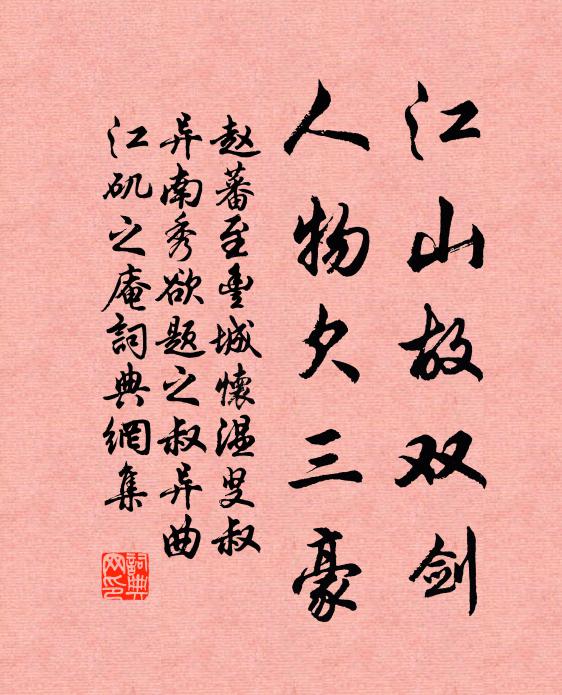 江山故双剑
人物欠三豪
赵蕃至豊城懷温叟叔
异南秀欲题之叔异曲
江矶之庵詞典網集
詞典网印